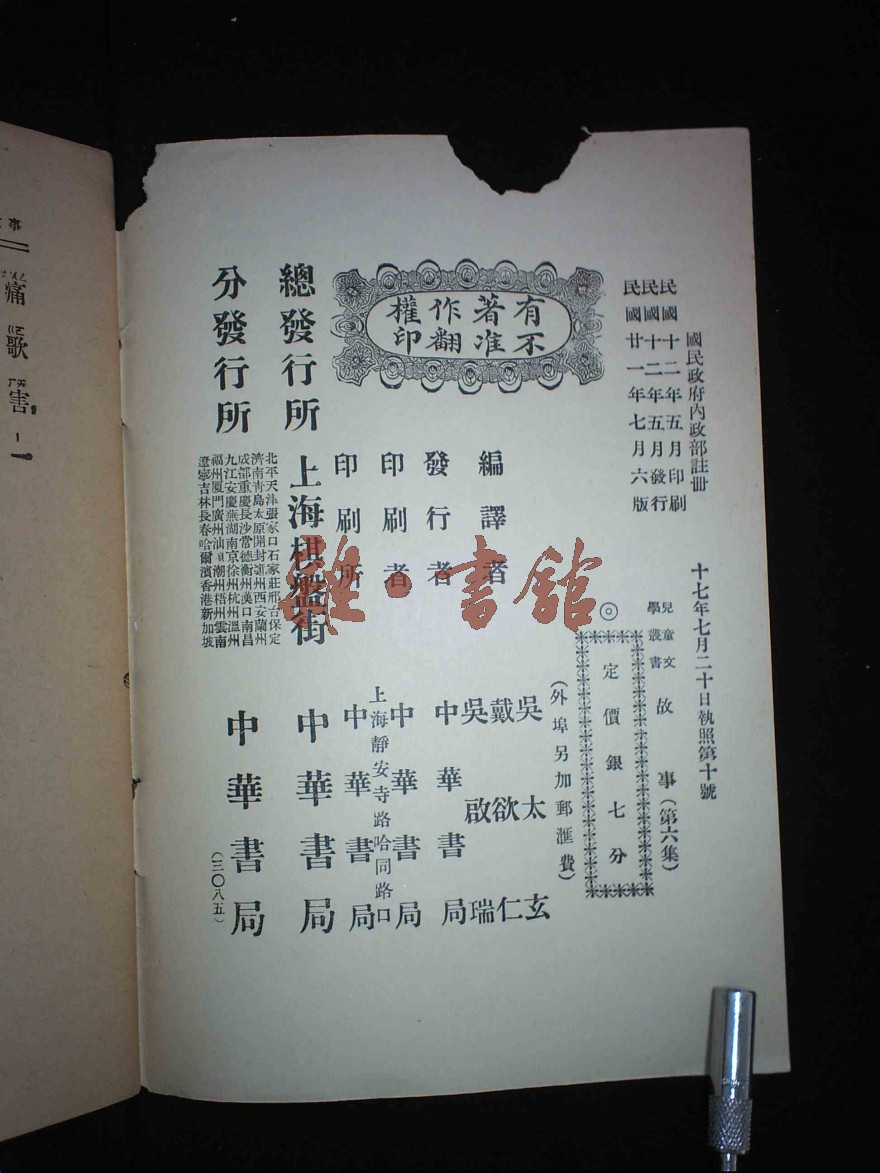 國民政府內政部註冊
十七年七月二十日執照第十號
民國十二年五月印刷
民國十二年五月發行
民國廿一年七月六版
兒童文
學叢書
故事(第六集)
◎
定價銀七分
(外埠另加郵滙費)
有不
著准
作翻
權印
編譯者
吳太玄
戴欲仁
吳啟瑞
發行者
中華書局
印刷者
中華書局
印刷所
上海靜安寺路哈同路口
中華書局
總發行所
上海棋盤街
中華書局
分發行所
北平天津張家口石家莊邢台保定
濟南青島太原開封鄭州西安蘭州
成都重慶長沙常德衡州漢口南昌
九江安慶蕪湖南京徐州杭州溫州
福州厦門廣州汕頭潮州梧州雲南
遼寧吉林長春哈爾濱香港新加坡
中華書局
(三〇八五)
雜·書館
事
痛
歌
害